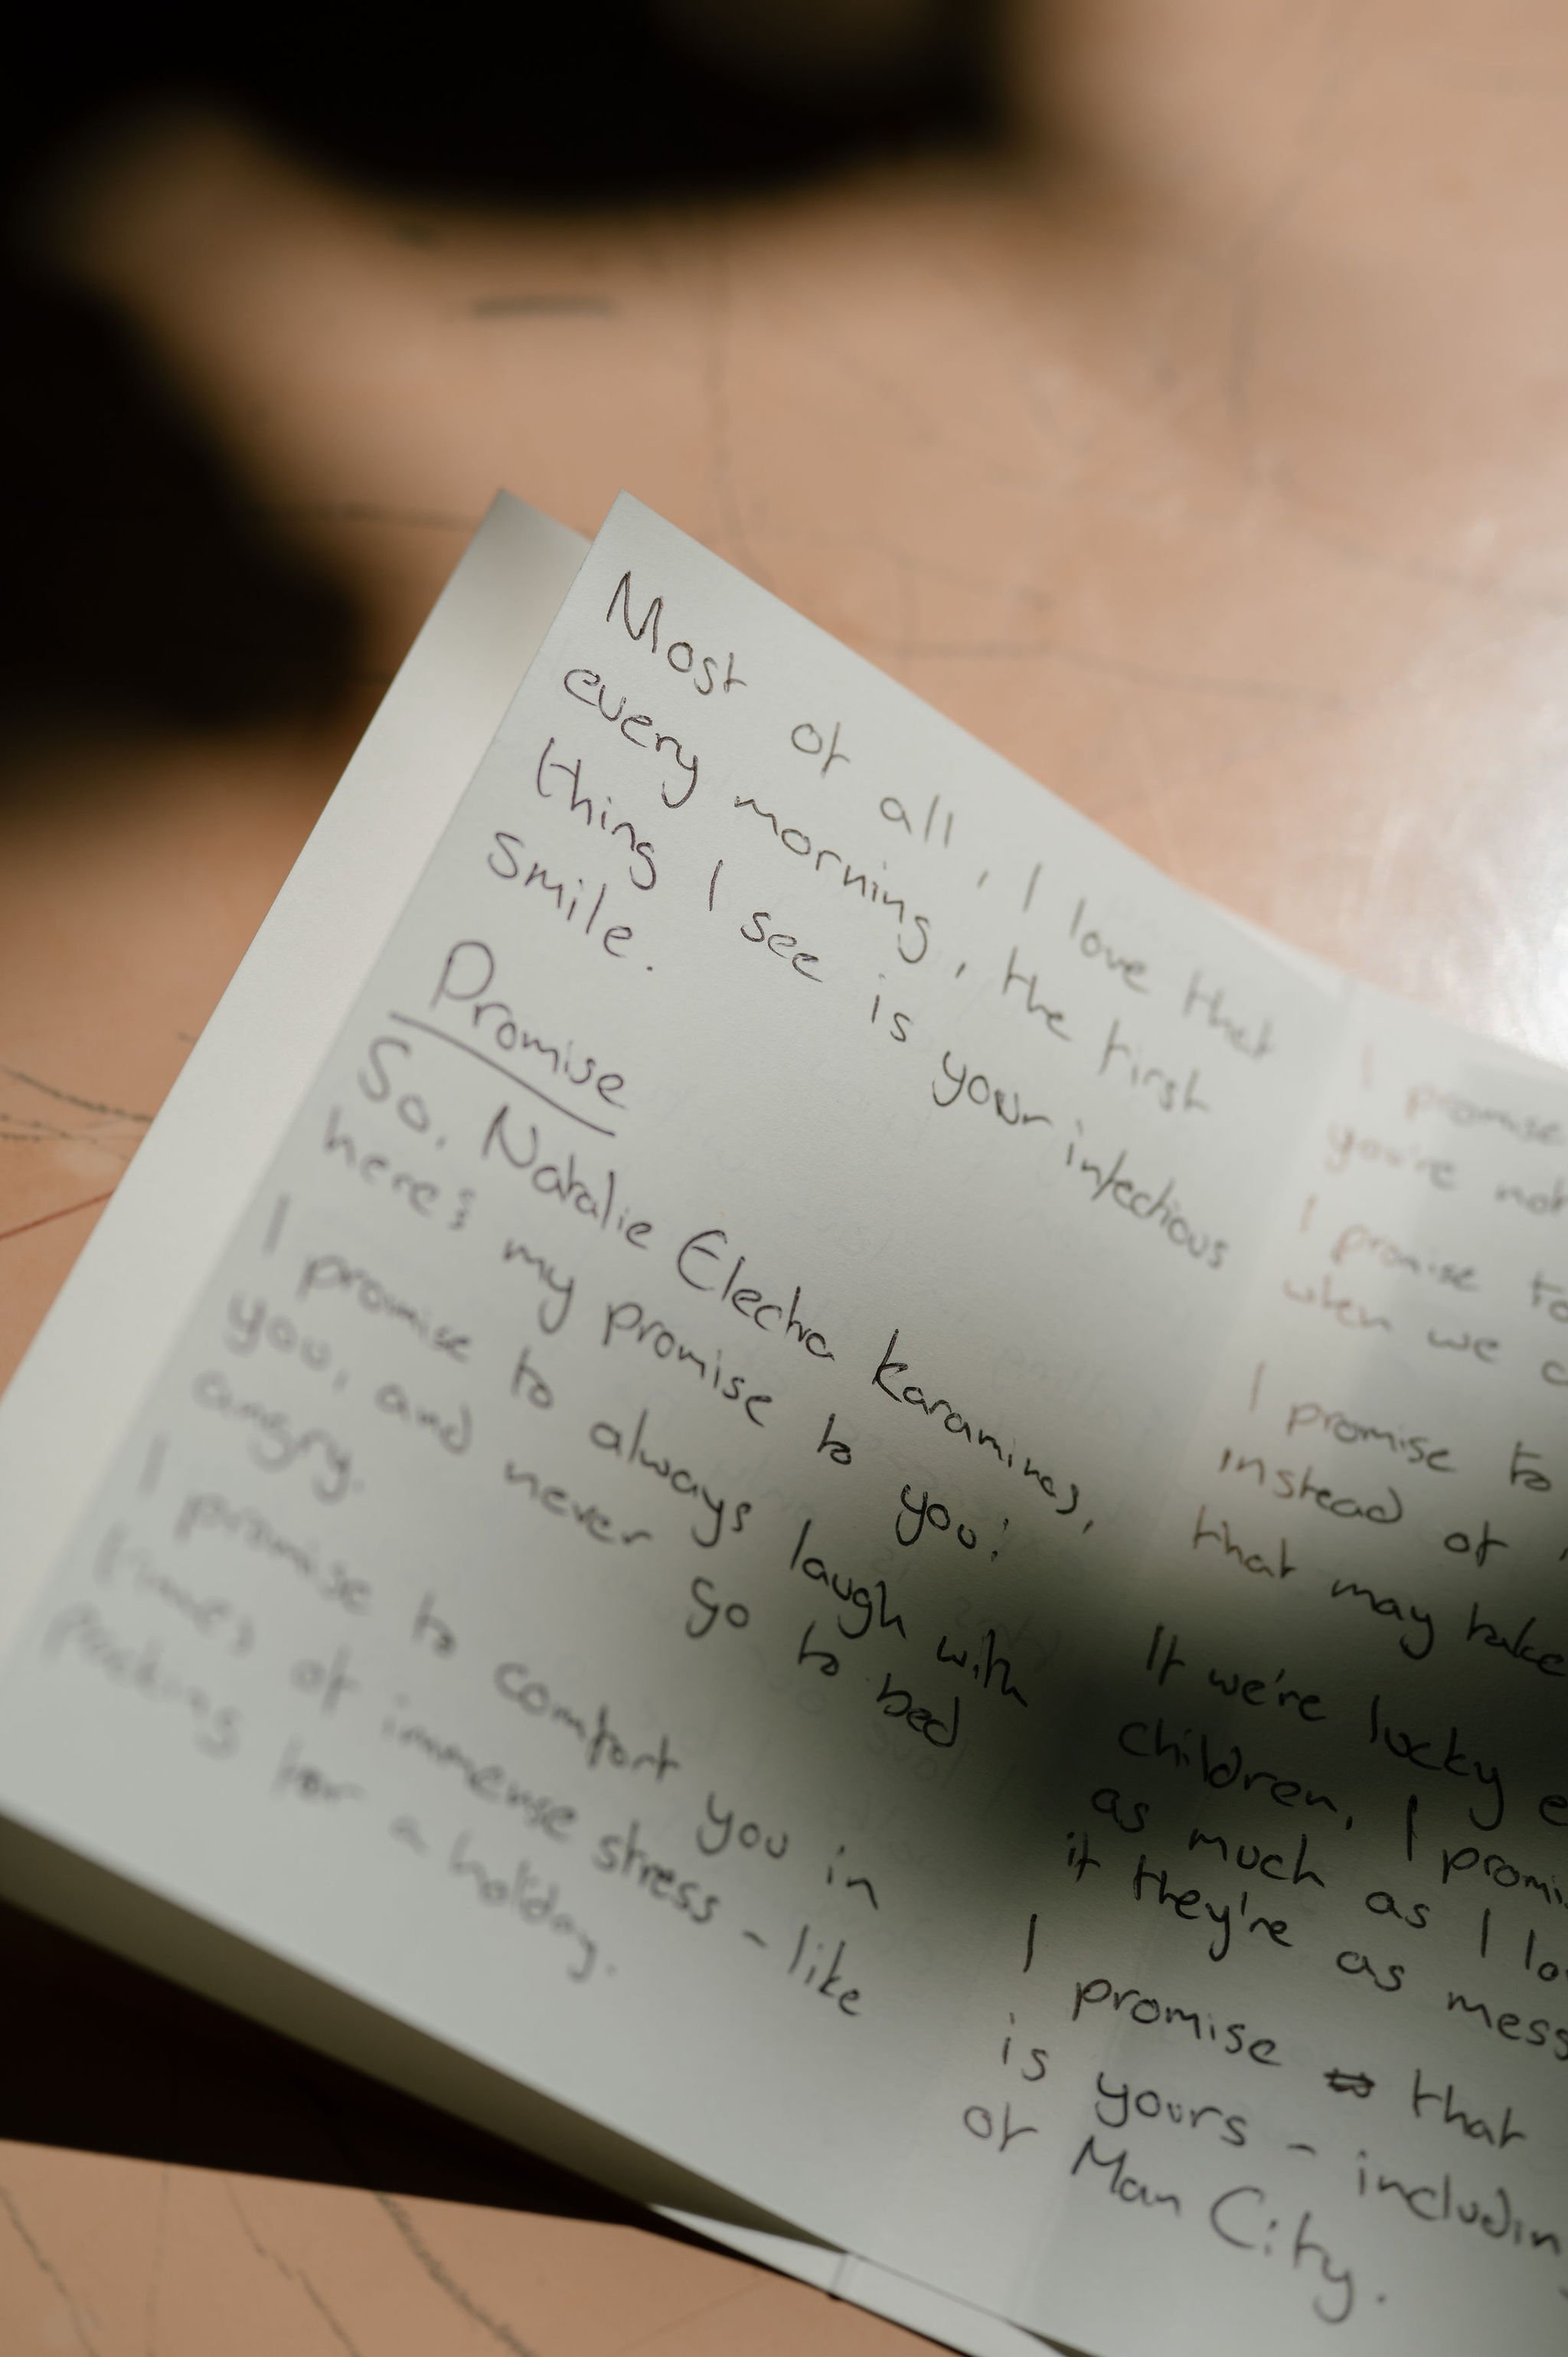 Most of all, I love that
every morning, the first
thing I see is your infectious
smile.
Promise
So, Natalie Electra Karamines,
here's my promise to you:
I promise to always laugh with
you, and never go to bed
angry.
I promise to comfort you in
times of immense stress - like
packing for a holiday.
I promise
you're not
I promise to
when we
I promise to
instead of
that may take
If we're lucky
children, I
as much as I
if they're as
I promise that
is yours -
of Man City.